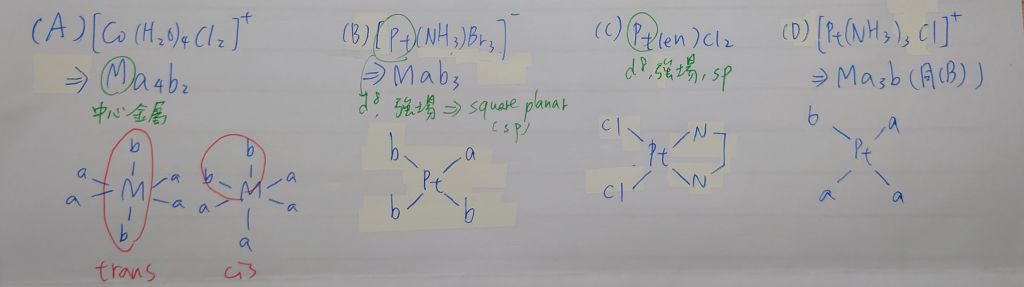 (A) [Co(H₂O)₄Cl₂]⁺
⇒ Ma₄b₂
中心金屬
b
a a
M
a a
b
trans
b
b a
M
a a
a
cis
(B) [Pt(NH₃)Br₃]⁻
⇒ Mab₃
d⁸, 強場 ⇒ square planar
(sp)
b a
Pt
b b
(C) Pt(en)Cl₂
d⁸, 強場, sp
Cl N
Pt
Cl N
(D) [Pt(NH₃)₃Cl]⁺
⇒ Ma₃b (同(B))
b a
Pt
a a